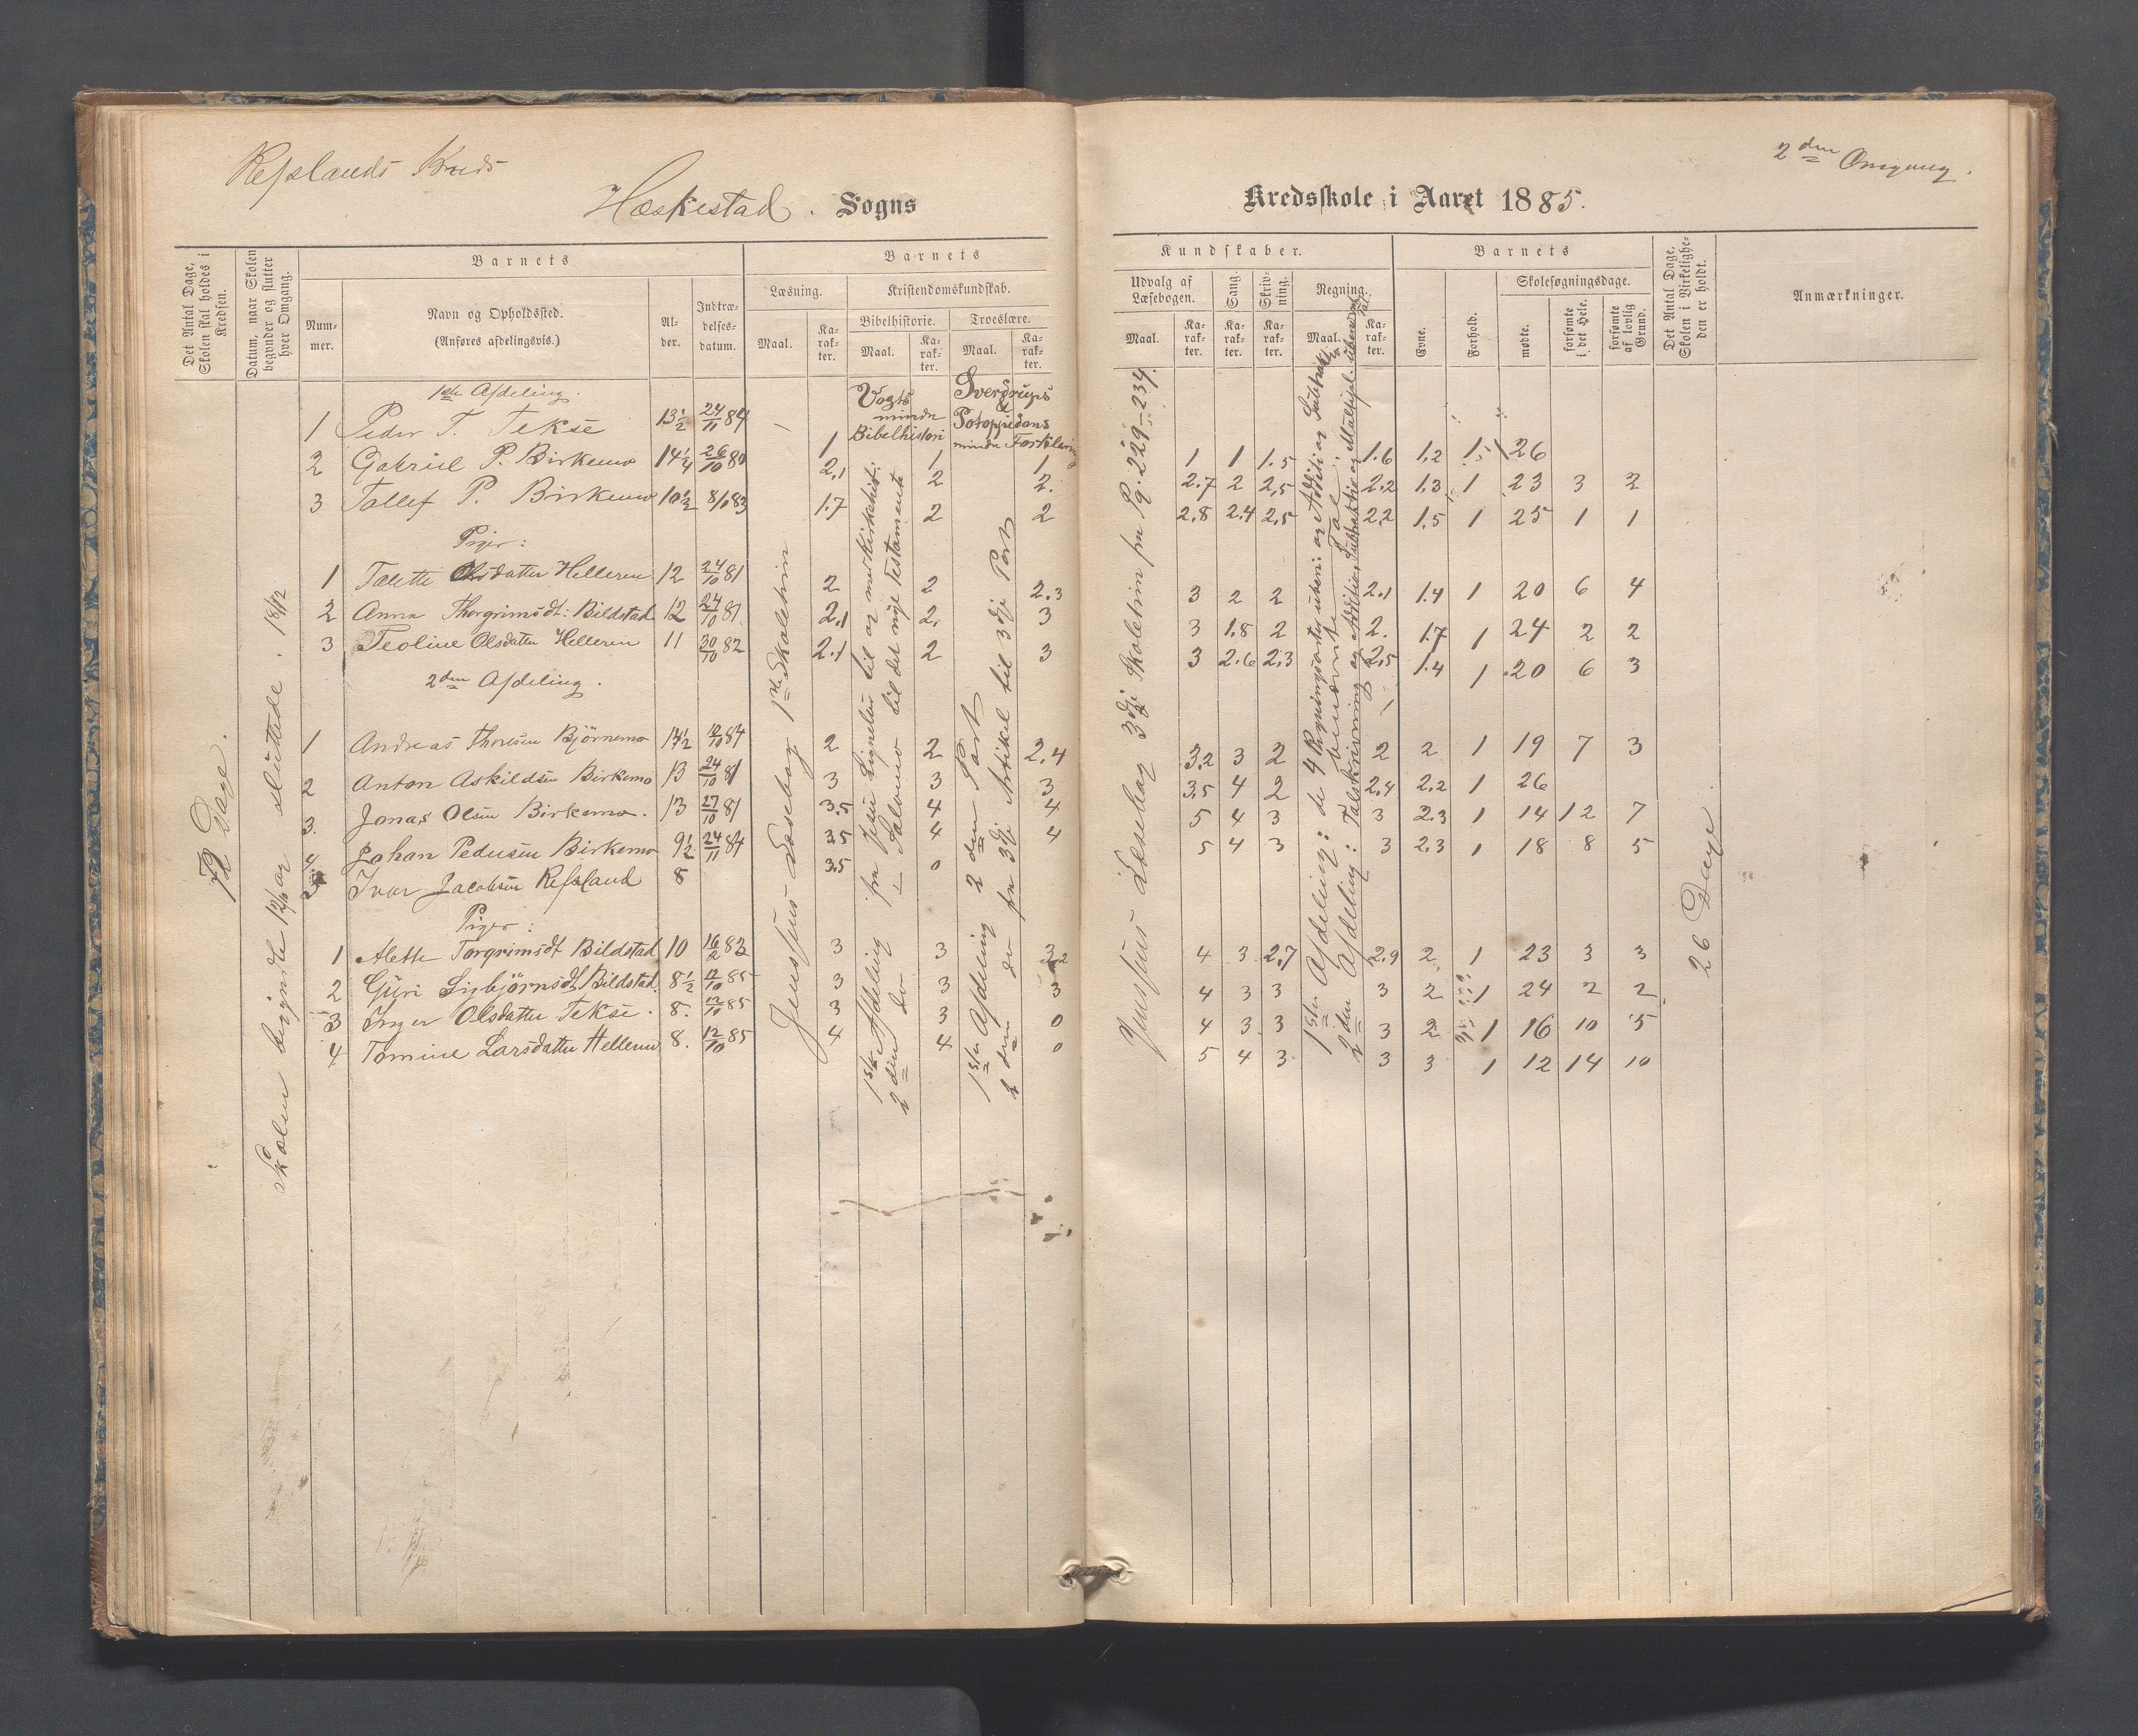 Refslands Kreds
Hæskestad. Sogns
Kredsskole i Aaret 1885.
2den Omgang.
Det Antal Dage, Skolen skal holdes i Kredsen.
Datum, naar Skolen begynder og slutter hver Omgang.
Barnets
Nummer.
Navn og Opholdssted.
(Anføres afdelingsvis.)
Alder.
Indtrædelses-datum.
Barnets
Læsning.
Maal.
Karakter.
Kristendomskundskab.
Bibelhistorie.
Maal.
Karakter.
Troeslære.
Maal.
Karakter.
Kundskaber.
Udvalg af Læsebogen.
Maal.
Karakter.
Sang.
Karakter.
Skrivning.
Karakter.
Regning.
Maal.
Karakter.
Barnets
Evne.
Forhold.
Skolesøgningsdage.
mødte.
forsømte i det Hele.
forsømte af lovlig Grund.
Det Antal Dage, Skolen i Virkeligheden er holdt.
Anmærkninger.
72 Dage.
Skolen begyndte 12/10 og sluttede 18/12
1ste Afdeling.
1 Peder T. Tekse 13½ 24/11 84 1 1 1 1 1 1.5 1.6 1.2 1.5 26
2 Gabriel P. Birkemo 14¼ 26/10 80 2.1 2 2. 2.7 2 2.5 2.2 1.3 1 23 3 2
3 Tollef P. Birkemo 10½ 8/10 83 1.7 2 2 2.8 2.4 2.5 2.2 1.5 1 25 1 1
Piger:
1 Talette Olsdatter Helleren 12 24/10 81 2 2 2.3 3 2 2 2.1 1.4 1 20 6 4
2 Anna Thorgrimsdt: Bildstad 12 24/10 81 2.1 2. 3 3 1.8 2 2. 1.7 1 24 2 2
3 Teoline Olsdatter Helleren 11 30/10 82 2.1 2 3 3 2.6 2.3 2.5 1.4 1 20 6 3
2den Afdeling.
1 Andreas Thoresen Björnemo 14½ 84 2 2 2.4 3.2 3 2 2 2 1 19 7 3
2 Anton Askildsen Birkemo 13 24/10 81 3 3 3 3.5 4 2 2.4 2.2 1 26
3. Jonas Olsen Birkemo. 13 27/10 81 3.5 4 4 5 4 3 3 2.3 1 14 12 7
4 Johan Pedersen Birkemo 9½ 24/11 84 3.5 4 4 5 4 3 3 2.3 1 18 8 5
Ivar Jacobsen Refsland 8 3.5 0
Piger:
1 Alette Torgrimsdt Bildstad 10 16/2 83 3 3 3.2 4 3 2.7 2.9 2 1 23 3 3
2 Gjuri Sigbjörnsdt Bildstad. 8½ 12/10 85 3 3 3 4 3 3 3 2 1 24 2 2
3 Inger Olsdatter Tekse. 8. 12/10 85 3 3 0 4 3 3 3 2 1 16 10 5
4 Tomine Larsdatter Helleren 8. 12/10 85 4 4 0 5 4 3 3 3 1 12 14 10
Jensens Læsebog 1ste Skoletrin
Vogts mindre Bibelhistori
1ste Afdeling fra Jesu Lignelser til og med Kirkehist:
2den do " Salomo til det nye Testamente
Sverdrups & Potoppidans mindre Forklaring
1ste Afdeling 2den Part
2den do fra 3die Artikel til 3die Part
Jensens Læsebog 3die Skoletrin fra Pg. 229-234.
1ste Afdeling: de 4 Regningsarter uben: og Additi og Subtrak: i benævnte Tal.
2den Afdeling: Talskrivning og Addition, Subtraktio og Multipl. i ubenævnte Tal
26 Dage